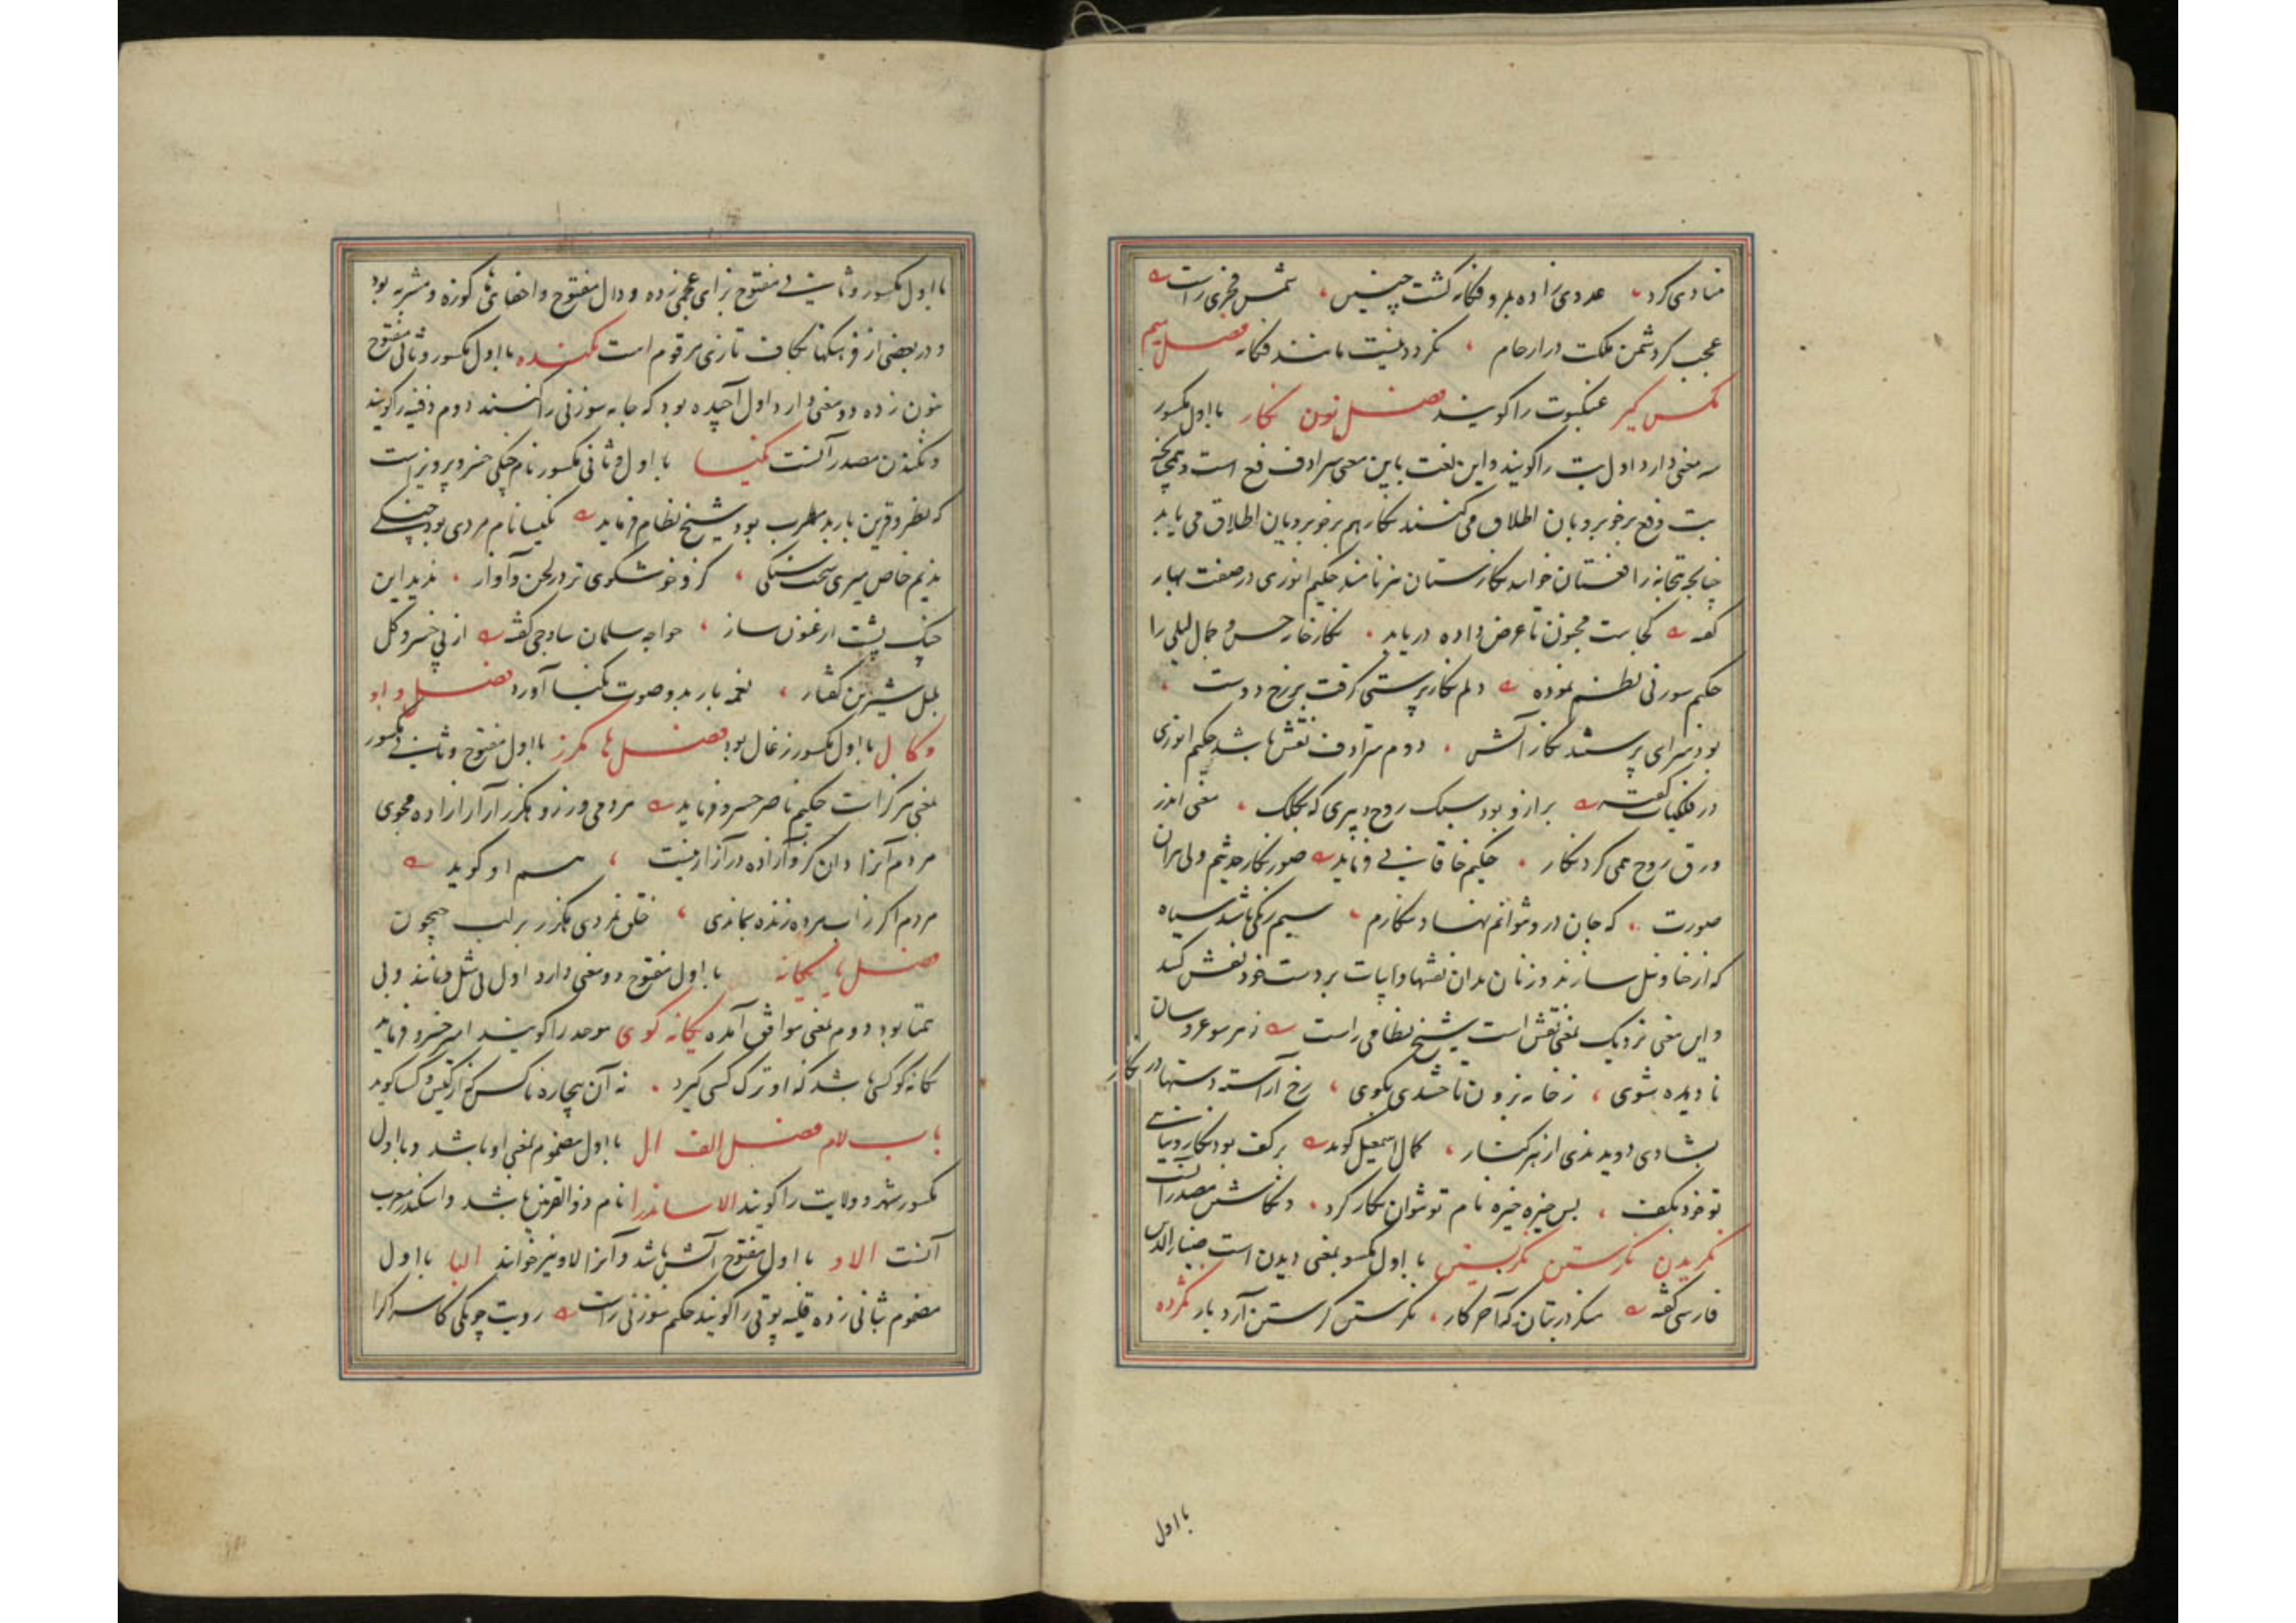 منادی کرد عدوی زاده مرد فکانه گشت چنین شمس فخری راست
عجب کر دشمن ملکت در ارحام نکردد نیست مانند فکانه فصل میم
مکس کیر عنکبوت را کویند فصل نون نکار با اول مکسور
سه معنی دارد اول بت را کویند و این لغت باین معنی مرادف فغ است و همچنانکه
بت و فغ بر خوبرویان اطلاق می کنند نکار هم بر خوبرویان اطلاق می یابد
چنانچه بتخانه را فغستان خوانند نکارستان نیز نامند حکیم انوری در صفت بهار
کفته کجاست مجنون تا عرض داده دریابد نکارخانه حسن و جمال لیلی را
حکیم سوزنی نظم نموده دلم نکارپرستی کرفت بر رخ دوست
بود سرای پرستنده نکار آتش دوم مترادف نقش باشد حکیم انوری
در فلکیات کفته برازو بود سبک روح دبیری که بکلک معنی اندر
ورق روح همی کرد نکار حکیم خاقانی فرماید صورت نکار حدیثم ولی بران
صورت که جان درو نتوانم نهاد ننکارم سیم رنکی باشد سیاه
که از حنا و نیل سازند و زنان بدان نقشها و ابیات بر دست خود نقش کنند
و این معنی نزدیک بمعنی نقش است شیخ نظامی راست ز هر سو عروسان
نادیده شوی ز خانه برون تاختندی بکوی رخ آراسته دستها در نکار
بشادی دویدندی از هر کنار کمال اسمعیل کوید بر کف بود نکار و نیائی
تو خود بکف بس خیره خیره نام تو نتوان نکار کرد و نکاشتن مصدر آنست
نکریدن نکرستن نکریستن با اول مکسور بمعنی دیدن است ضیاء الدین
فارسی کفته منکر در بتان که آخر کار نکرستن کرستن آرد بار نکژده
با اول
با اول مکسور و ثانی مفتوح بزای عجمی زده و دال مفتوح و اخفای ها کوزه و مشربه بود
و در بعضی از فرهنکها بکاف تازی مرقوم است نکنده با اول مکسور و ثانی مفتوح
بنون زده دو معنی دارد اول آجیده بود که جامه سوزنی را کنند دوم دفینه را کویند
و نکندن مصدر آنست نکیسا با اول و ثانی مکسور نام چنکی خسرو پرویز است
که نظیر و قرین باربد مطرب بود شیخ نظام فرماید نکیسا نام مردی بود چنکی
ندیم خاص میری سخت سنکی کزو خوشکوی تر در لحن و آواز ندید این
چنک پشت ارغنون ساز خواجه سلمان ساوجی کفته از پی خسرو کل
بلبل شیرین کفتار نغمه باربد و صوت نکیسا آورد فصل واو
وکال با اول مکسور زغال بود فصل ها هکرز با اول مفتوح و ثانی مکسور
بمعنی هرکز است حکیم ناصر خسرو فرماید مردمی ورز و هکرز آزار آزاده مجوی
مردم آنرا دان کزو آزاده در آزار نیست هم او کوید
مردم اکر ز آب مرده زنده بماندی خلق نمردی هکرز بر لب جیحون
فصل یا یکانه با اول مفتوح دو معنی دارد اول بی مثل و مانند و بی
همتا بود دوم بمعنی موافق آمده یکانه کوی موحد را کویند امیر خسرو فرماید
یکانه کو کسی باشد که او ترک کسی کیرد نه آن بیچاره ناکس که از کیش و کسا کوید
باب لام فصل الف ال با اول مضموم بمعنی او باشد و با اول
مکسور شهر و ولایت را کویند الاساندرا نام ذوالقرنین باشد و اسکندر معرب
آنست الاو با اول مفتوح آتش باشد و آنرا لاو نیز خوانند البا با اول
مضموم بثانی زده قلیه پوتی را کویند حکیم سوزنی راست